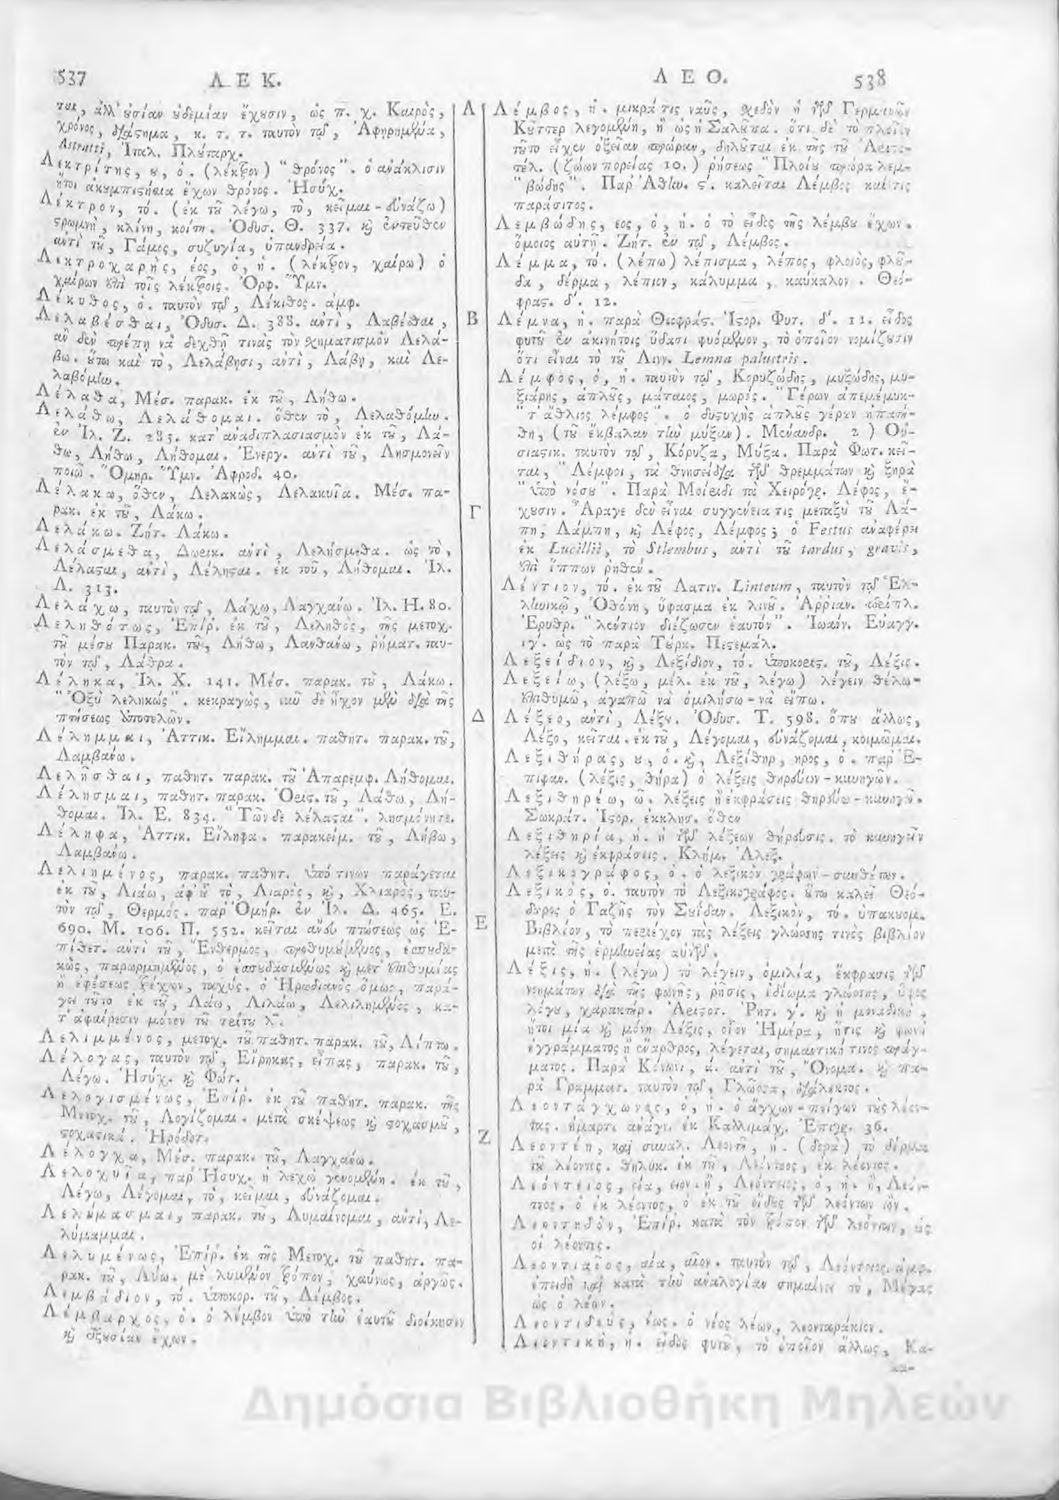 537 ΛΕΚ.
ται, ἀλλ' ὐσίαν ὐδεμίαν ἔχυσιν, ὡς π. χ. Καιρὸς,
χρόνος, διάςημα, κ. τ. τ. ταυτὸν τῷ, Ἀφῃρημένα,
Astratti, Ἰταλ. Πλύταρχ.
Λεκτρίτης, ȣ, ὁ. (λέκτρον) "θρόνος". ὁ ἀνάκλισιν
ἤτοι ἀκȣμπιςήρια ἔχων θρόνος. Ἡσύχ.
Λέκτρον, τό. (ἐκ τȣ λέγω, τὸ, κεῖμαι - πλαγιάζω)
ςρωμνὴ, κλίνη, κοίτη. Ὀδυσ. Θ. 337. καὶ ἐντεῦθεν
αντὶ τȣ, Γάμος, συζυγία, ὑπανδρεία.
Λεκτροχαρὴς, έος, ὁ, ἡ. (λέκτρον, χαίρω) ὁ
χαίρων ἐπὶ τοῖς λέκτροις. Ὀρφ. Ὕμν.
Λέκυθος, ὁ. ταυτὸν τῷ, Λέκιθος. ἀμφ.
Λελαβέσθαι, Ὀδυσ. Δ. 388. αντὶ, Λαβέσθαι,
ἂν δὲν πρέπῃ νὰ δεχθῇ τινὰς τὸν χηματισμὸν Λελά-
βω. ȣτω καὶ τὸ, Λελάβησι, αντὶ, Λάβῃ, καὶ Λε-
λαβόμην.
Λέλαθα, Μέσ. παρακ. ἐκ τȣ, Λήθω.
Λελάθω, Λελάθομαι. ὅθεν τὸ, Λελαθόμην.
ἐν Ἰλ. Ζ. 285. κατ' αναδιπλασιασμὸν ἐκ τȣ, Λά-
θω, Λήθω, Λήθομαι. Ἐνεργ. αντὶ τȣ, Λησμονεῖν
ποιῶ. Ὁμηρ. Ὕμν. Ἀφροδ. 40.
Λέλακα, ὅθεν, Λελακὼς, Λελακυῖα. Μέσ. πα-
ρακ. ἐκ τȣ, Λάκω.
Λελάκω. Ζήτ. Λάκω.
Λελάσμεθα, Δωρικ. αντὶ, Λελήσμεθα. ὡς τὸ,
Λέλαςαι, αντὶ, Λέληςαι. ἐκ τοῦ, Λήθομαι. Ἰλ.
Λ. 313.
Λελάχω, ταυτὸν τῷ, Λάχω, Λαγχάνω. Ἰλ. Η. 80.
Λεληθότως, Ἐπίρ. ἐκ τȣ, Λεληθὸς, τῆς μετοχ.
τȣ μέσȣ Παρακ. τȣ, Λήθω, Λανθάνω, ῥήματ. ταυ-
τὸν τῷ, Λάθρα.
Λέληκα, Ἰλ. Χ. 141. Μέσ. παρακ. τȣ, Λάκω.
"Ὀξὺ λεληκώς". κεκραγὼς, καὶ δὴ ἦχον μὲν διὰ τῆς
πτήσεως ἀποτελῶν.
Λέλημμαι, Ἀττικ. Εἴλημμαι. παθητ. παρακ. τȣ,
Λαμβάνω.
Λελῆσθαι, παθητ. παρακ. τȣ Ἀπαρεμφ. Λήθομαι.
Λέλησμαι, παθητ. παρακ. Ὁρις. τȣ, Λάθω, Λή-
θομαι. Ἰλ. Ε. 834. "Τῶν δὲ λέλαςαι". λησμόνητε.
Λέληφα, Ἀττικ. Εἴληφα. παρακείμ. τȣ, Λήβω,
Λαμβάνω.
Λελιημένος, παρακ. παθητ. ὑπό τινων παράγεται
ἐκ τȣ, Λιάω, ἀφ' ȣ τὸ, Λιαρὸς, καὶ, Χλιαρὸς, ταυ-
τὸν τῷ, Θερμός. παρ' Ὁμήρ. ἐν Ἰλ. Δ. 465. Ε.
690. Μ. 106. Π. 552. κεῖται ἄνευ πτώσεως ὡς Ἐ-
πίθετ. αντὶ τȣ, Ἔνθερμος, προθυμȣμένος, ἐσπȣδα-
κὼς, παρωρμημένος, ὁ ἐσπȣδασμένως καὶ μετ' ἐπιθυμίας
ἢ ἐφέσεως τρέχων, ταχύς. ὁ Ἡρωδιανὸς ὅμως, παρά-
γει τȣτο ἐκ τȣ, Λάω, Λιλάω, Λελιλημένος, κα-
τ' ἀφαίρεσιν μόνον τȣ τρίτȣ λ.
Λελιμμένος, μετοχ. τȣ παθητ. παρακ. τȣ, Λίπτω.
Λέλογας, ταυτὸν τῷ, Εἴρηκας, εἶπας, παρακ. τȣ,
Λέγω. Ἡσύχ. καὶ Φώτ.
Λελογισμένως, Ἐπίρ. ἐκ τȣ παθητ. παρακ. τῆς
Μετοχ. τȣ, Λογίζομαι. μετὰ σκέψεως καὶ ςοχασμȣ,
ςοχαςικά. Ἡρόδοτ.
Λέλογχα, Μέσ. παρακ. τȣ, Λαγχάνω.
Λελοχυῖα, παρ' Ἡσυχ. ἡ λεχὼ γενομένη. ἐκ τȣ,
Λέγω, Λέγομαι, τὸ, κεῖμαι, πλαγιάζομαι.
Λελύμασμαι, παρακ. τȣ, Λυμαίνομαι, αντὶ, Λε-
λύμαμμαι.
Λελυμένως, Ἐπίρ. ἐκ τῆς Μετοχ. τȣ παθητ. πα-
ρακ. τȣ, Λύω. μὲ λυμένον τρόπον, χαύνως, ἀργῶς.
Λεμβάδιον, τό. ὑποκορ. τȣ, Λέμβος.
Λέμβαρχος, ὁ. ὁ λέμβον ὑπὸ τὴν ἑαυτȣ διοίκησιν
καὶ ἐξȣσίαν ἔχων.
Α
Β
Γ
Δ
Ε
Ζ
ΛΕΟ. 538
Λέμβος, ἡ. μικρά τις ναῦς, σχεδὸν ἡ τῶν Γερμανῶν
Κȣττερ λεγομένη, ἢ ὡς ἡ Σαλȣπα. ὅτι δὲ τὸ πλοῖον
τȣτο εἶχεν ὀξεῖαν πρώραν, δηλȣται ἐκ τῆς τȣ Ἀριςο-
τέλ. (ζώων πορείας 10.) ῥήσεως "Πλοίȣ πρώρα λεμ-
"βώδης". Παρ' Ἀθήν. ς. καλεῖται Λέμβος καί τις
παράσιτος.
Λεμβώδης, εος, ὁ, ἡ. ὁ τὸ εἶδος τῆς λέμβȣ ἔχων.
ὅμοιος αὐτῇ. Ζήτ. ἐν τῷ, Λέμβος.
Λέμμα, τό. (λέπω) λέπισμα, λέπος, φλοιὸς, φλȣ-
δα, δέρμα, λέπιον, κάλυμμα, καύκαλον. Θεό-
φρας. δ'. 12.
Λέμνα, ἡ. παρὰ Θεοφράς. Ἱςορ. Φυτ. δ'. 11. εἶδος
φυτȣ ἐν ἀκινήτοις ὕδασι φυόμενον, τὸ ὁποῖον νομίζȣσιν
ὅτι εἶναι τὸ τȣ Λινν. Lemna palustris.
Λέμφος, ὁ, ἡ. ταυτὸν τῷ, Κορυζώδης, μυξώδης, μυ-
ξιάρης, ἁπλȣς, μάταιος, μωρός. "Γέρων ἀπεμέμυκ-
"τ' ἄθλιος λέμφος". ὁ δυςυχὴς ἁπλȣς γέρων ἠπατή-
θη, (τȣ ἔκβαλαν τὴν μύξαν). Μενανδρ. 2) Οὐ-
σιαςικ. ταυτὸν τῷ, Κόρυζα, Μύξα. Παρὰ Φωτ. κεῖ-
ται, "Λέμφοι, τὰ θνησείδια τῶν θρεμμάτων καὶ ξηρὰ
"ὑπὸ νόσȣ". Παρὰ Μοίριδι τὰ Χειρόγρ. Λέφος, ἔ-
χȣσιν. Ἆραγε δὲν εἶναι συγγένειά τις μεταξὺ τȣ Λά-
πη, Λάμπη, καὶ Λέφος, Λέμφος; ὁ Festus ἀναφέρει
ἐκ Lucillii, τὸ Stlembus, αντὶ τȣ tardus, gravis,
ἐπὶ ἵππων ῥηθέν.
Λέντιον, τό. ἐκ τȣ Λατιν. Linteum, ταυτὸν τῷ Ἑλ-
ληνικῷ, Ὀθόνη, ὕφασμα ἐκ λινȣ. Ἀρριαν. περίπλ.
Ἐρυθρ. "λέντιον διέζωσεν ἑαυτόν". Ἰωάν. Εὐαγγ.
ιγ'. ὡς τὸ παρὰ Τȣρκ. Πεςεμάλ.
Λεξείδιον, καὶ, Λεξίδιον, τό. ὑποκορις. τȣ, Λέξις.
Λεξείω, (λέξω, μέλ. ἐκ τȣ, λέγω) λέγειν θέλω-
ἐπιθυμῶ, ἀγαπῶ νὰ ὁμιλήσω - νὰ εἴπω.
Λέξεο, αντὶ, Λέξȣ. Ὀδυσ. Τ. 598. ὅπȣ ἄλλως,
Λέξο, κεῖται. ἐκ τȣ, Λέγομαι, πλαγιάζομαι, κοιμῶμαι.
Λεξιθήρας, ȣ, ὁ. καὶ, Λεξίθηρ, ηρος, ὁ. παρ' Ἐ-
πιφαν. (λέξις, θήρα) ὁ λέξεις θηρεύων - κυνηγῶν.
Λεξιθηρέω, ῶ. λέξεις ἢ ἐκφράσεις θηρεύω - κυνηγῶ.
Σωκράτ. Ἱςορ. ἐκκλησ. ὅθεν
Λεξιθηρία, ἡ. ἡ τῶν λέξεων θήρευσις. τὸ κυνηγεῖν
λέξεις καὶ ἐκφράσεις. Κλήμ. Ἀλεξ.
Λεξικογράφος, ὁ. ὁ λεξικὸν γράφων - συνθέτων.
Λεξικὸς, ὁ. ταυτὸν τὸ Λεξικογράφος. ȣτω καλεῖ Θεό-
δωρος ὁ Γαζῆς τὸν Σȣίδαν. Λεξικὸν, τό. ὑπακουομ.
Βιβλίον, τὸ περιέχον τὰς λέξεις γλώσσης τινὸς βιβλίον
μετὰ τῆς ἑρμηνείας αὐτῶν.
Λέξις, ἡ. (λέγω) τὸ λέγειν, ὁμιλία, ἔκφρασις τῶν
νοημάτων διὰ τῆς φωνῆς, ῥῆσις, ἰδίωμα γλώσσης, ὕφος
λόγȣ, χαρακτήρ. Ἀριςοτ. Ῥητ. γ'. καὶ ἡ μοναδικὴ,
ἤτοι μία καὶ μόνη Λέξις, οἷον Ἡμέρα, ἥτις καὶ φωνὴ
ἐγγράμματος ἢ ἔναρθρος, λέγεται, σημαντική τινος πράγ-
ματος. Παρὰ Κόνωνι, 4. αντὶ τȣ, Ὄνομα. καὶ πα-
ρὰ Γραμματ. ταυτὸν τῷ, Γλῶσσα, διάλεκτος.
Λεονταγχωνὸς, ὁ, ἡ. ὁ ἄγχων - πνίγων τȣς λέον-
τας. ἡμαρτ. ἀνάγν. ἐκ Καλλιμάχ. Ἐπιγρ. 36.
Λεοντέη, καὶ συναλ. Λεοντῆ, ἡ. (δορὰ) τὸ δέρμα
τȣ λέοντος. θηλυκ. ἐκ τȣ, Λεόντεος, ἐκ λέοντος.
Λεόντειος, εία, ειον. ἢ, Λεόντειος, ὁ, ἡ. ἢ, Λεόν-
τεος. ὁ ἐκ λέοντος, ὁ ἐκ τȣ εἴδȣς τῶν λεόντων ὤν.
Λεοντηδὸν, Ἐπίρ. κατὰ τὸν τρόπον τῶν λεόντων, ὡς
οἱ λέοντες.
Λεοντιαῖος, αία, αῖον. ταυτὸν τῷ, Λεόντειος. ἀμφ.
ἐπειδὴ καὶ κατὰ τὴν ἀναλογίαν σημαίνει τὸ, Μέγας
ὡς ὁ λέων.
Λεοντιδεὺς, έως. ὁ νέος λέων, λεονταράκιον.
Λεοντικὴ, ἡ. εἶδος φυτȣ, τὸ ὁποῖον ἄλλως, Κα-
κα-
Δημόσια Βιβλιοθήκη Μηλεών